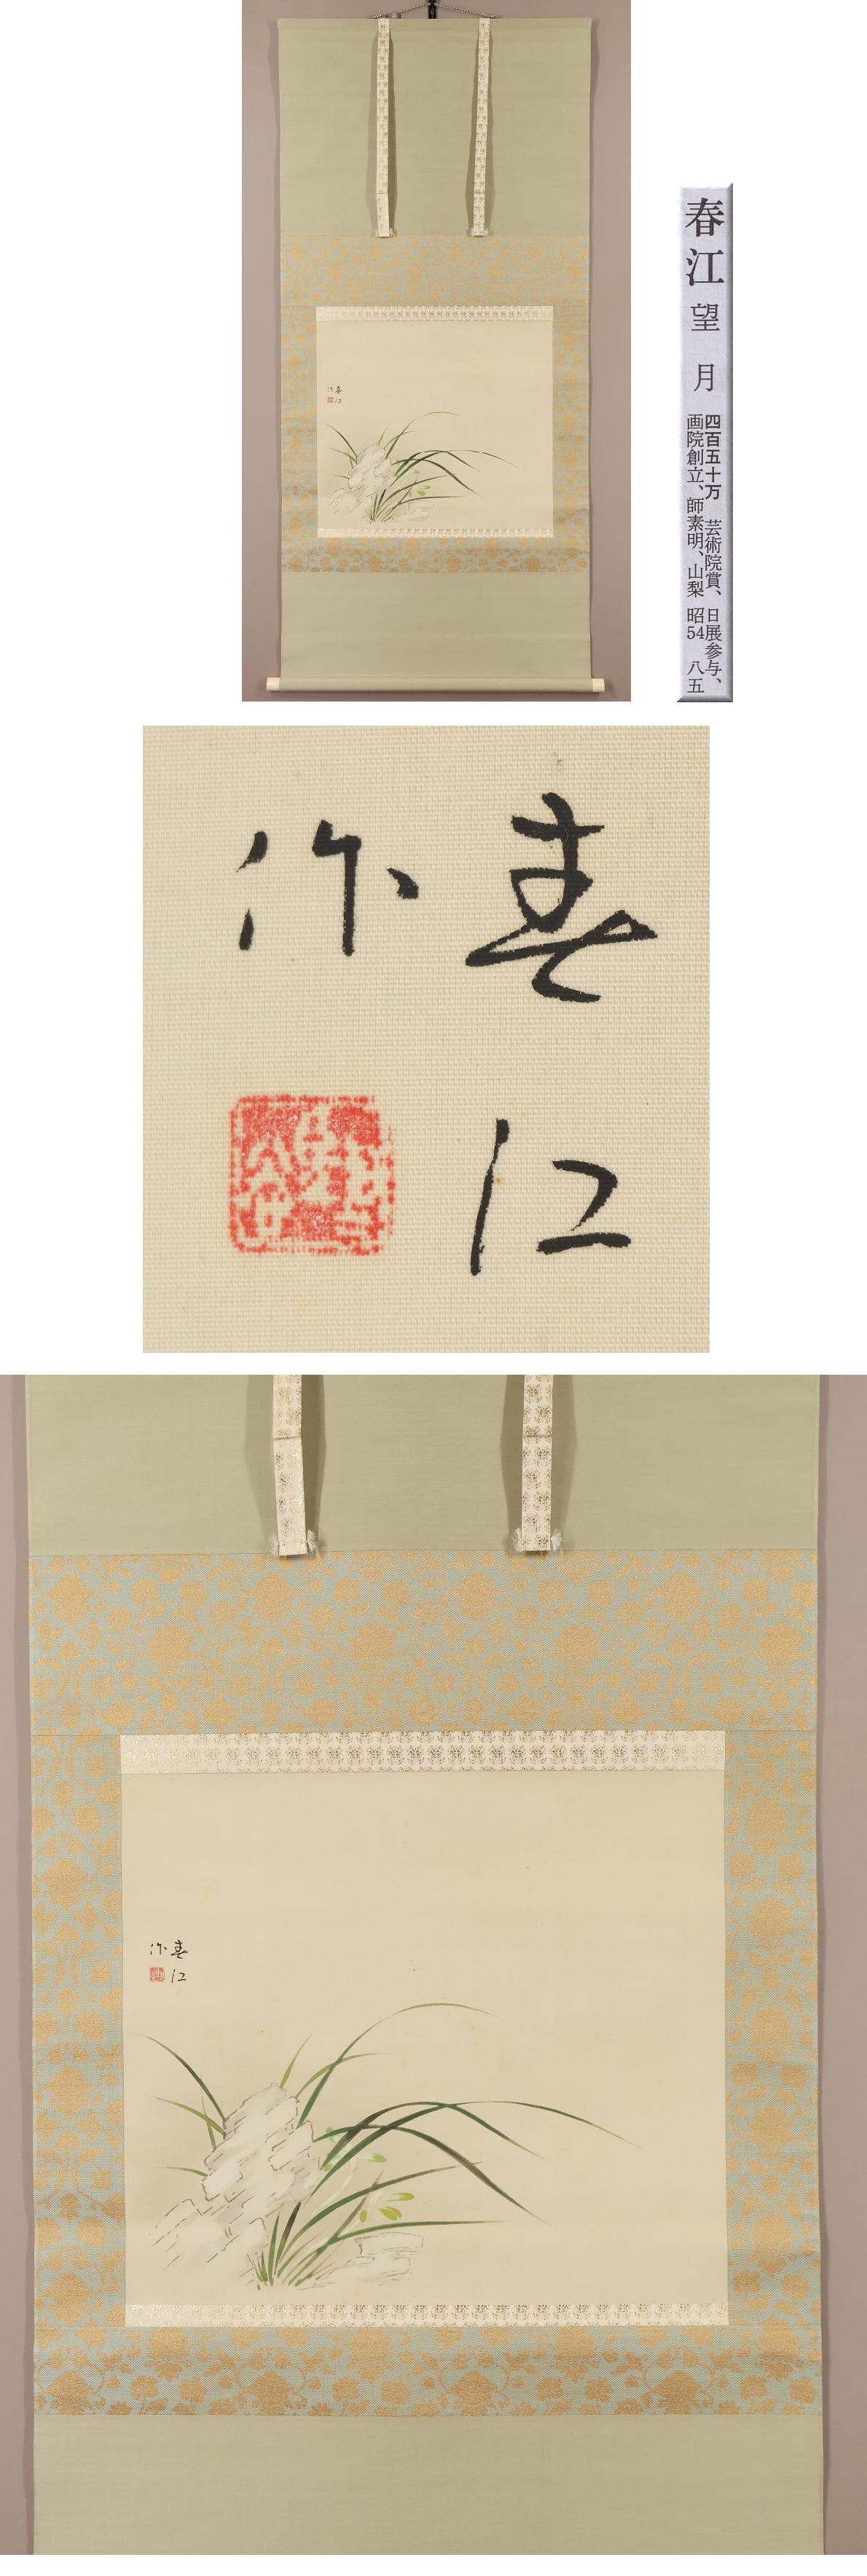 春江 望月
四百五十万 芸術院賞、日展参与、
画院創立、師素明、山梨 昭54 八五
春江
作
春江
作
春江
作